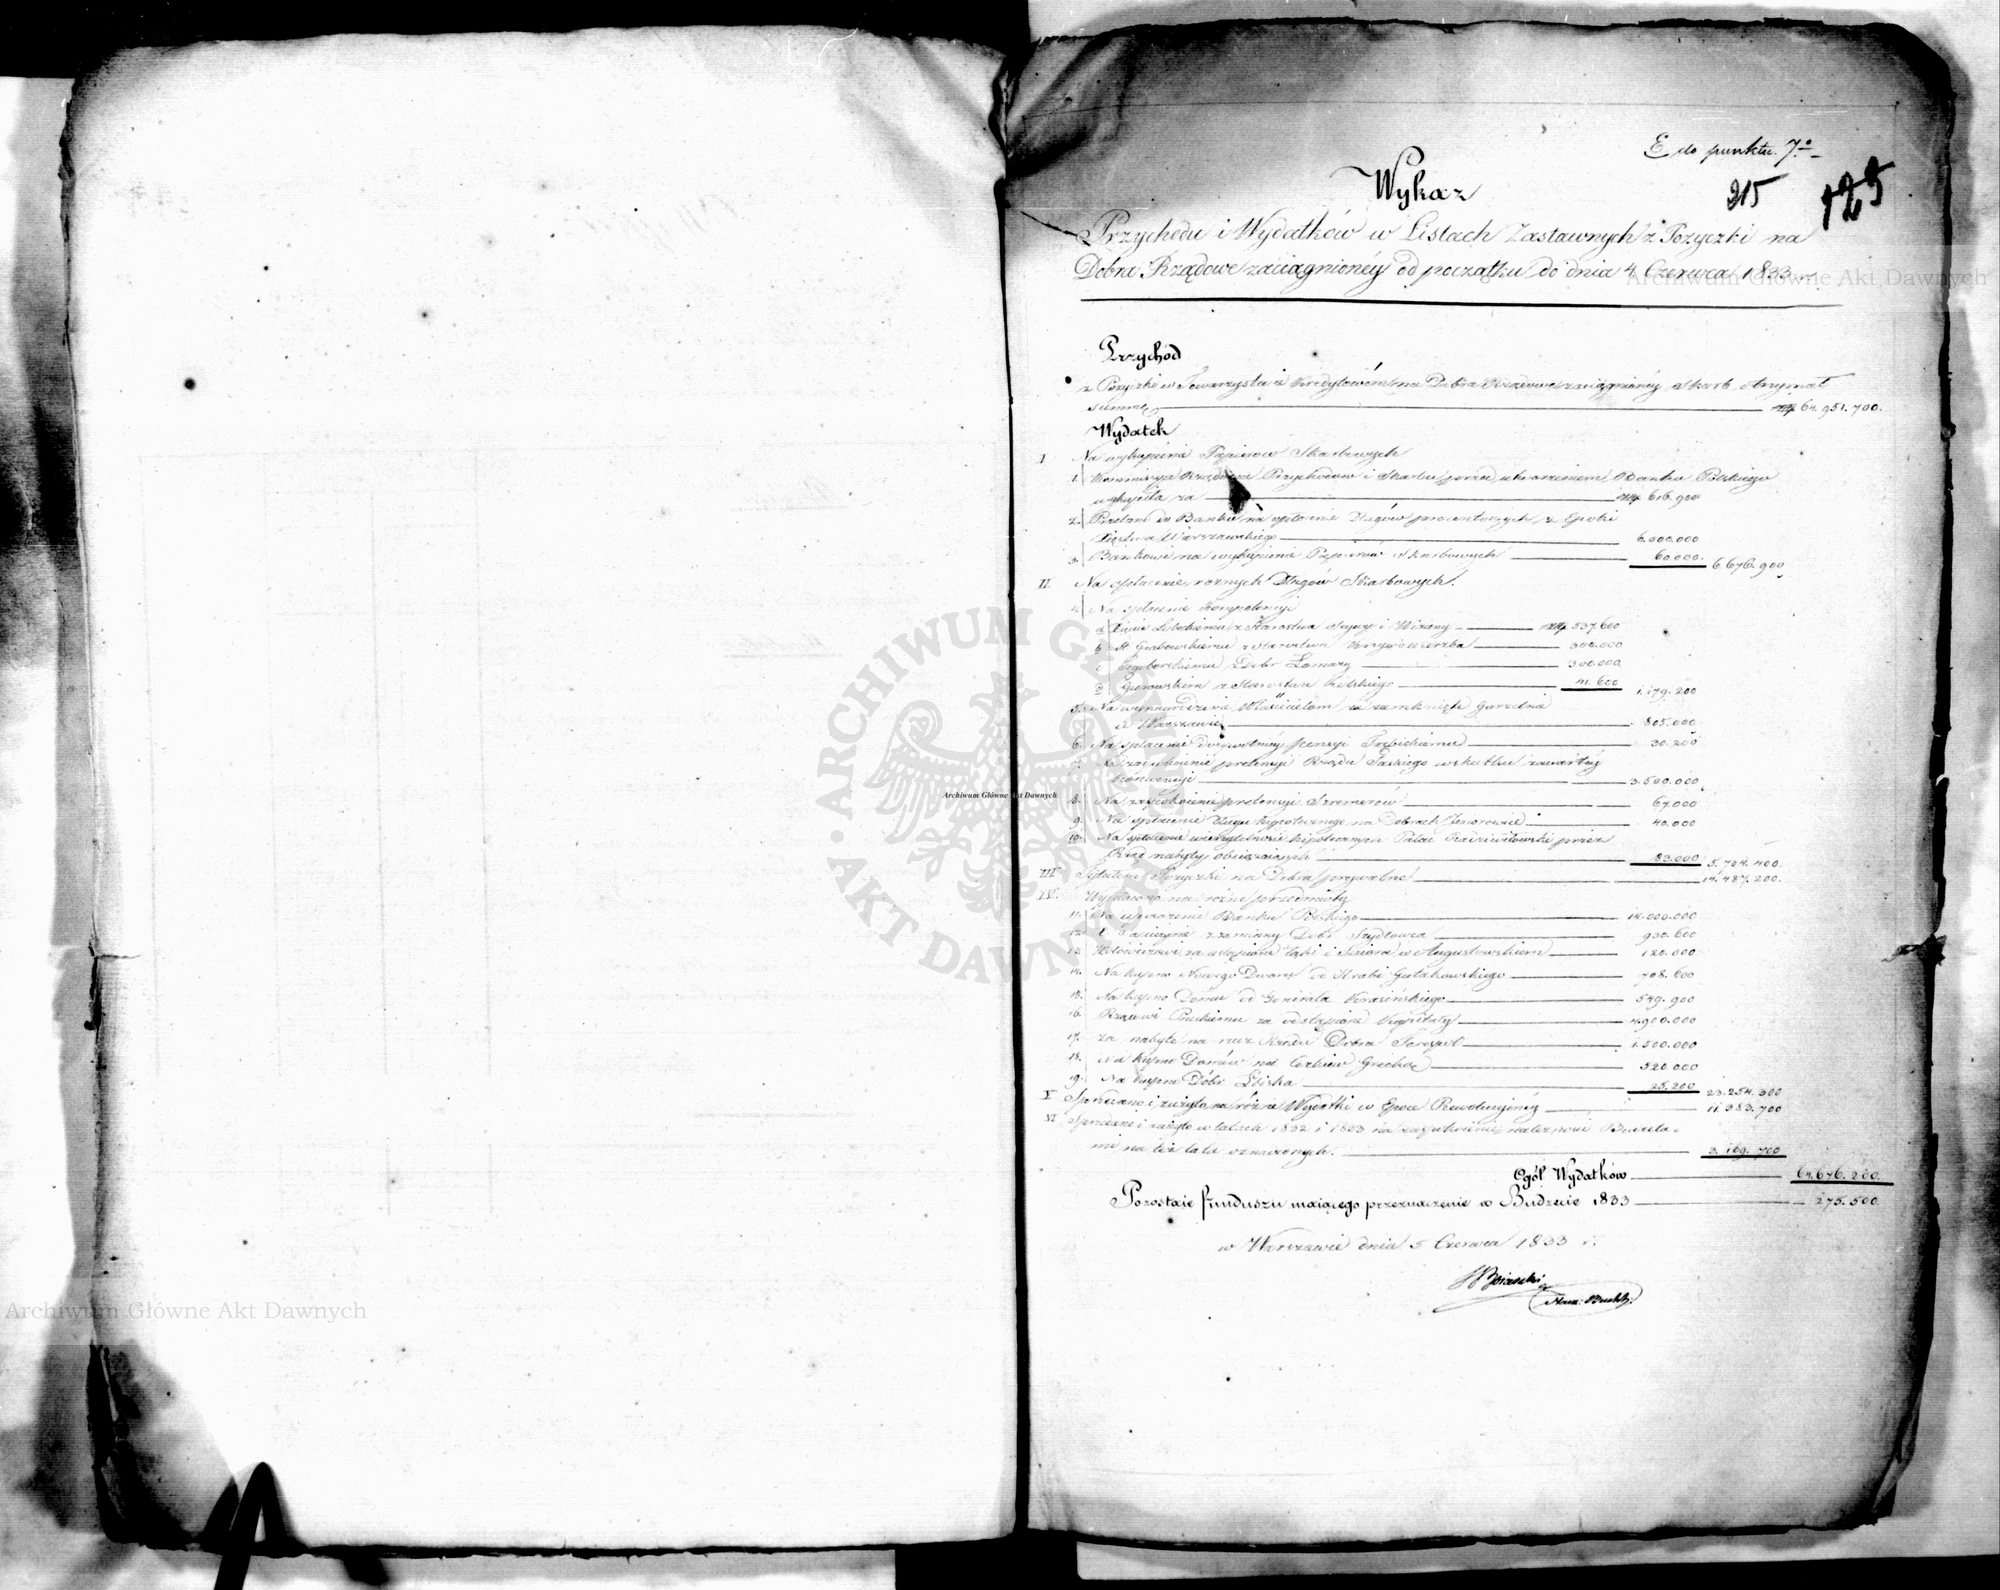 E do punktu 7º
Wykaz
215
125
Przychodu i Wydatków w Listach Zastawnych z Pożyczki na
Dobra Rządowe zaciągnioney od początku do dnia 4 Czerwca 1833
Przychód
z Pożyczki w Towarzystwie Kredytowem na Dobra Rządowe zaciągnioney Skarb otrzymał
summę 64.951.700.
Wydatek
I Na wykupienie Papierów Skarbowych
1. Kommissya Rządowa Przychodów i Skarbu przed utworzeniem Banku Polskiego
wykupiła za 616.900
2. do Banku na spłacenie Długów procentowych z Epoki
Xięstwa Warszawskiego 6.000.000
3. Bankowi na wykupienie Papierów Skarbowych 60.000. 6.676.900
II. Na spłacenie roznych Długów Skarbowych.
4. Na spłacenie
a Lubeckiemu z Starostwa i 537.600
b H. Grabowskiemu z Starostwa 300.000
c Dóbr Łomazy 300.000
d Gurowskim z Starostwa Kolskiego 41.600 1.179.200
5. Na wynagrodzenie Właścicielom za
w Warszawie 805.000
6. Na spłacenie dożywotniey pensyi 30.200
7. Na zaspokoienie pretensyi Rządu Saskiego wskutku zawartey
konwencyi 3.500.000
8. Na zaspokoienie pretensyi 67.000
9. Na spłacenie Długu hypotecznego na Dobrach 40.000
10. Na spłacenie wierzytelności hipotecznych Pałac Radziwiłłowski przez
Rząd nabyty obciążaiących 83.000 5.704.400.
III. Tytułem Pożyczki na Dobra prywatne 14.487.200.
IV. Wypłacono na różne przedmioty
11. Na uposażenie Banku Polskiego 14.000.000
12. z zamiany Dóbr Szydłowca 930.600
13. za ustąpione łąki i w Augustowskiem 120.000
14. Na kupno Nowego Dworu od Hrabi Gutakowskiego 708.600
15. Na kupno Domu od Generała Krasińskiego 549.900
16. Rządowi Pruskiemu za odstąpione Kapitały 4.900.000
17. za nabyte na rzecz Rządu Dobra Terespol 1.500.000
18. Na kupno Domów na Cerkiew Grecką 520.000
19. Na kupno Dóbr 25.200 23.254.300
V Sprzedano i zużyto na różne Wydatki w Epoce Rewolucyiney 11.383.700
VI Sprzedano i zużyto w latach 1832 i 1833 na zaspokoienie należności Budżeta-
mi na też lata oznaczonych. 3.169.700
Ogół Wydatków 64.676.200.
Pozostaie funduszu maiącego przeznaczenie w Budżecie 1833 275.500.
w Warszawie dnia 5 Czerwca 1833 r.
Archiwum Główne Akt Dawnych
Archiwum Główne Akt Dawnych
Archiwum Główne Akt Dawnych
ARCHIWUM GŁÓWNE AKT DAWNYCH